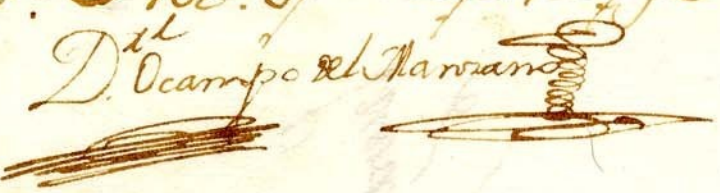 D.xl Ocampo del Manzano